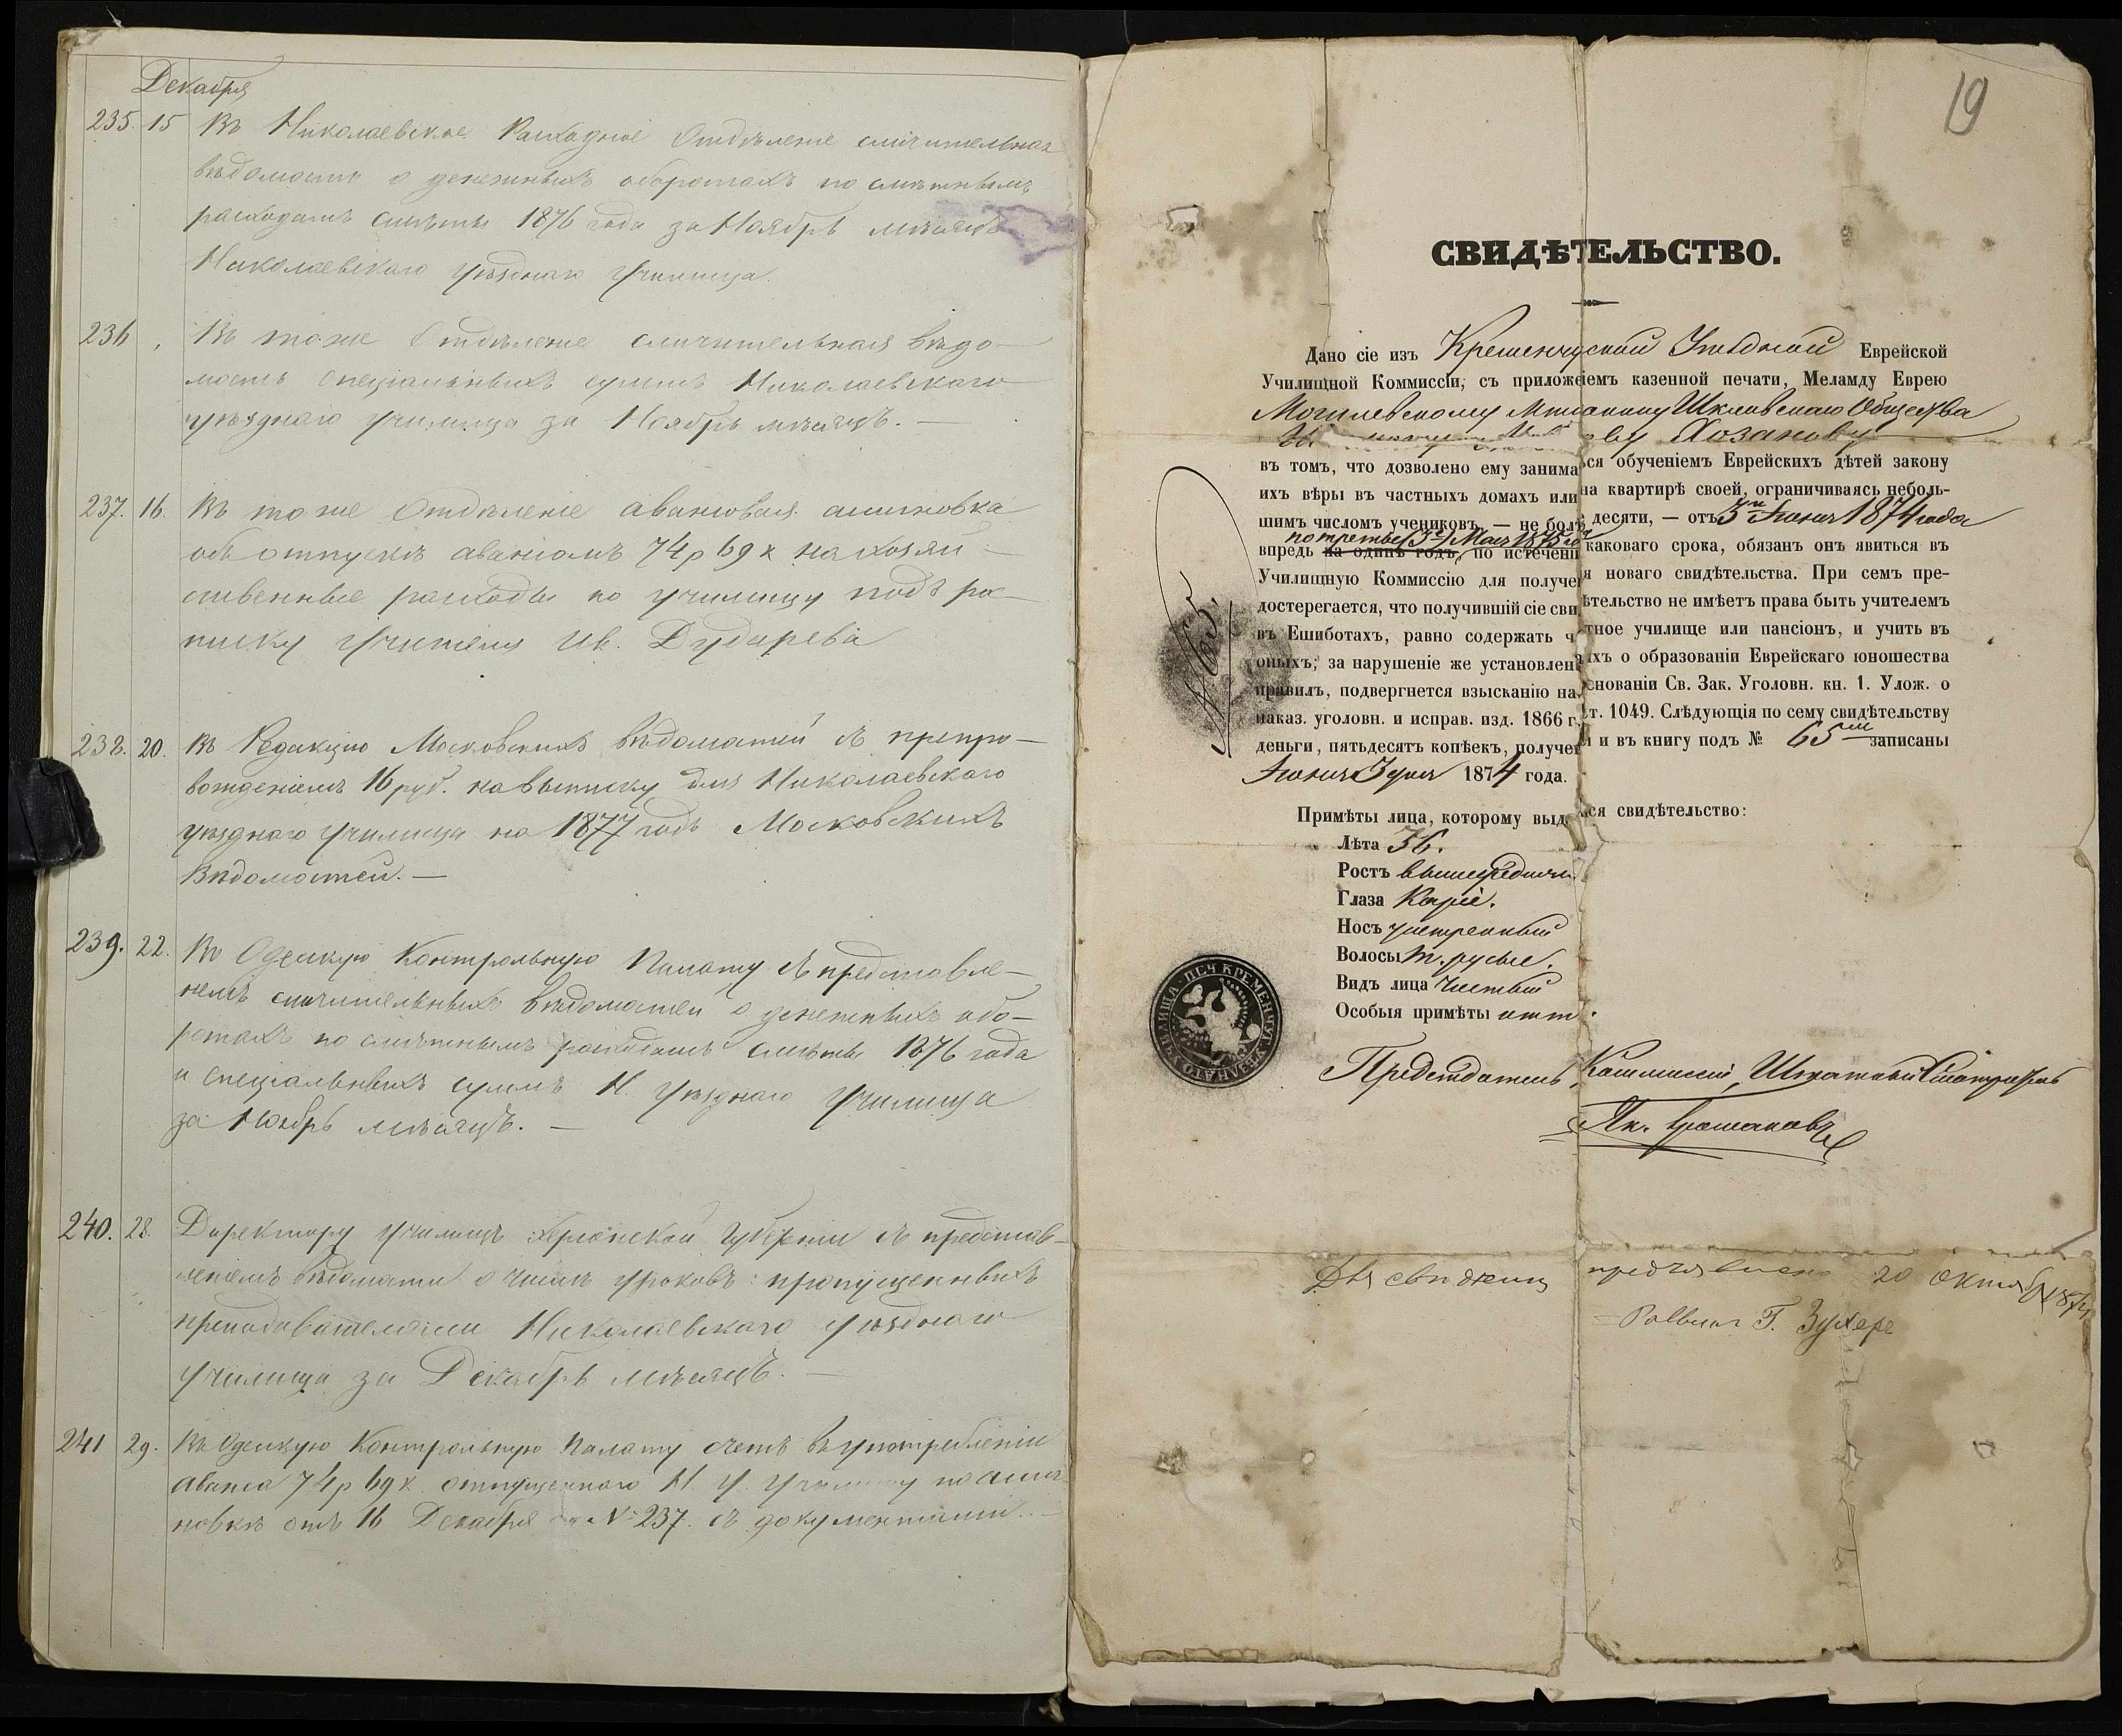 Декабря
235. 15 Въ Николаевское Расходное Отдѣленіе сличительная
вѣдомость о денежныхъ оборотахъ по смѣтнымъ
расходамъ смѣты 1876 года за Ноябрь мѣсяцъ
Николаевскаго уѣзднаго училища.
236 Въ тоже Отдѣленіе сличительная вѣдо-
мость спеціальныхъ суммъ Николаевскаго
уѣзднаго училища за Ноябрь мѣсяцъ. —
237. 16. Въ тоже Отдѣленіе авансовая ассигновка
объ отпускѣ авансомъ 74 р 69 к на хозяй-
ственные расходы по училищу подъ рос-
писку Учителя Ив. Дударева
238. 20. Въ Редакцію Московскихъ вѣдомостей съ препро-
вожденіемъ 16 руб. на выписку для Николаевскаго
уѣзднаго училища на 1877 годъ Московскихъ
Вѣдомостей. —
239. 22. Въ Одескую Контрольную Палату съ представле-
ніемъ сличительныхъ вѣдомостей о денежныхъ обо-
ротахъ по смѣтнымъ расходамъ смѣты 1876 года
и спеціальныхъ суммъ Н. Уѣзднаго Училища
за Ноябрь мѣсяцъ. —
240. 28. Директору Училищъ Херсонской Губерніи съ представ-
леніемъ вѣдомости о числѣ уроковъ пропущенныхъ
преподавателями Николаевскаго уѣзднаго
училища за Декабрь мѣсяцъ. —
241 29. Въ Одескую Контрольную Палату счетъ въ употребленіи
аванса 74 р 69 к. отпущеннаго Н. У. Училищу по ассиг-
новкѣ отъ 16 Декабря № 237. съ документами. —
19
СВИДѢТЕЛЬСТВО.
Дано сіе изъ Кременчугской Уѣздной Еврейской
Училищной Коммиссіи, съ приложеіемъ казенной печати, Меламду Еврею
Могилевскому Мѣщанину Шкловскаго Общества
Хозанову
въ томъ, что дозволено ему заниматься обученіемъ Еврейскихъ дѣтей закону
ихъ вѣры въ частныхъ домахъ или на квартирѣ своей, ограничиваясь неболь-
шимъ числомъ учениковъ, — не болѣе десяти, — отъ 3го Іюня 1874 года
по третье (3е) Мая 1875 го
впредь на одинъ годъ, по истеченіи каковаго срока, обязанъ онъ явиться въ
Училищную Коммиссію для полученія новаго свидѣтельства. При семъ пре-
достерегается, что получившій сіе свидѣтельство не имѣетъ права быть учителемъ
въ Ешиботахъ, равно содержать частное училище или пансіонъ, и учить въ
оныхъ; за нарушеніе же установленныхъ о образованіи Еврейскаго юношества
правилъ, подвергнется взысканію на основаніи Св. Зак. Уголовн. кн. 1. Улож. о
наказ. уголовн. и исправ. изд. 1866 г. ст. 1049. Слѣдующія по сему свидѣтельству
деньги, пятьдесятъ копѣекъ, получены и въ книгу подъ № 65мъ записаны
Іюня 3 дня 1874 года.
№ 65.
Примѣты лица, которому выдается свидѣтельство:
Лѣта 36.
Ростъ выше средняго
Глаза Каріе.
Носъ умѣренный
Волосы т. русые.
Видъ лица Чистый
Особыя примѣты нѣтъ.
ПЕЧ. КРЕМЕНЧУГ. УѢЗДНАГО УЧИЛИЩА
Предсѣдатель Коммиссіи, Штатный Смотритель
Дѣя свидкиц предъявлено 20 Октяб 1874
Раввинъ Г. Зухере